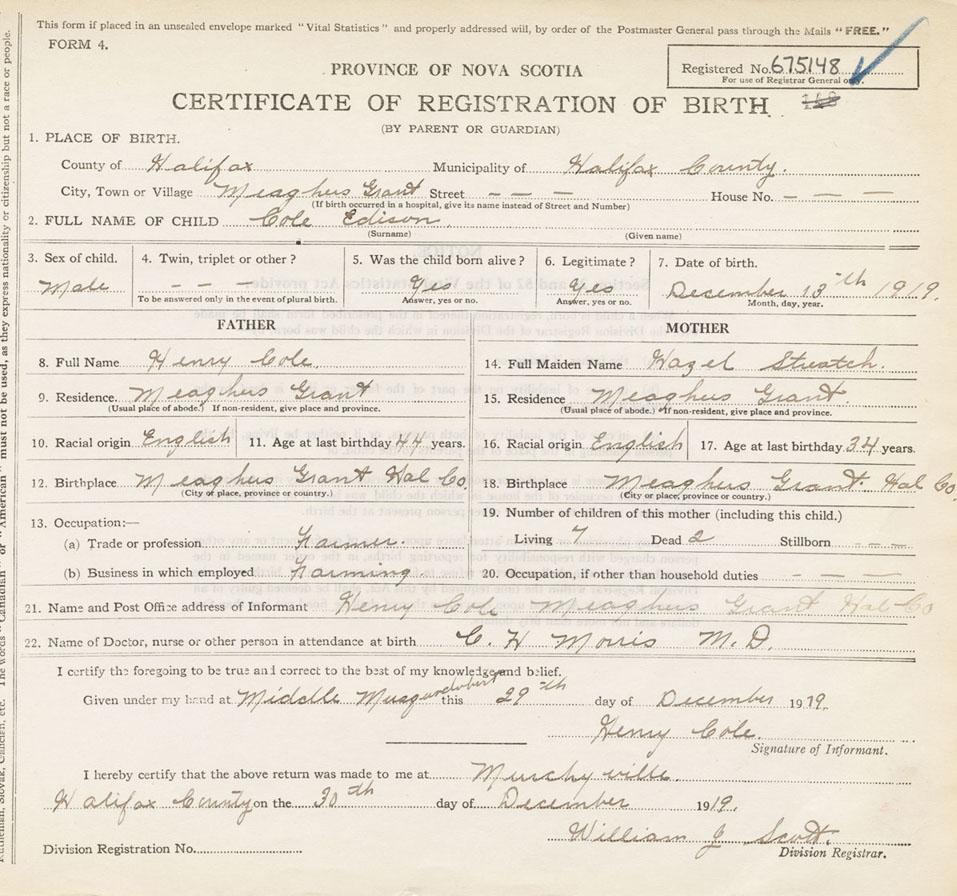 This form if placed in an unsealed envelope marked "Vital Statistics" and properly addressed will, by order of the Postmaster General pass through the Mails "FREE."
FORM 4.
Registered No. 675148
For use of Registrar General only.
PROVINCE OF NOVA SCOTIA
CERTIFICATE OF REGISTRATION OF BIRTH
(BY PARENT OR GUARDIAN)
1. PLACE OF BIRTH.
County of Halifax Municipality of Halifax County.
City, Town or Village Meaghers Grant Street — — — House No. — — —
(If birth occurred in a hospital, give its name instead of Street and Number)
2. FULL NAME OF CHILD Cole Edison
(Surname) (Given name)
3. Sex of child. 4. Twin, triplet or other? 5. Was the child born alive? 6. Legitimate? 7. Date of birth.
Male — — — Yes Yes December 13th 1919.
To be answered only in the event of plural birth. Answer, yes or no. Answer, yes or no. Month, day, year.
FATHER MOTHER
8. Full Name Henry Cole. 14. Full Maiden Name Hazel
9. Residence. Meaghers Grant 15. Residence Meaghers Grant.
(Usual place of abode.) If non-resident, give place and province. (Usual place of abode.) If non-resident, give place and province.
10. Racial origin English 11. Age at last birthday 44 years. 16. Racial origin English 17. Age at last birthday 34 years.
12. Birthplace Meaghers Grant Hal Co. 18. Birthplace Meaghers Grant. Hal Co.
(City or place, province or country.) (City or place, province or country.)
13. Occupation:— 19. Number of children of this mother (including this child.)
(a) Trade or profession Farmer. Living 7 Dead 2 Stillborn — — —
(b) Business in which employed Farming. 20. Occupation, if other than household duties — — —
21. Name and Post Office address of Informant Henry Cole Meaghers Grant Hal Co
22. Name of Doctor, nurse or other person in attendance at birth C. H Morris M.D.
I certify the foregoing to be true and correct to the best of my knowledge and belief.
Given under my hand at Middle Musquodoboit this 29th day of December 1919.
Henry Cole.
Signature of Informant.
I hereby certify that the above return was made to me at Murchyville.
Halifax County on the 30th day of December 1919.
William J Scott.
Division Registration No. Division Registrar.
must not be used, as they express nationality or citizenship but not a race or people.